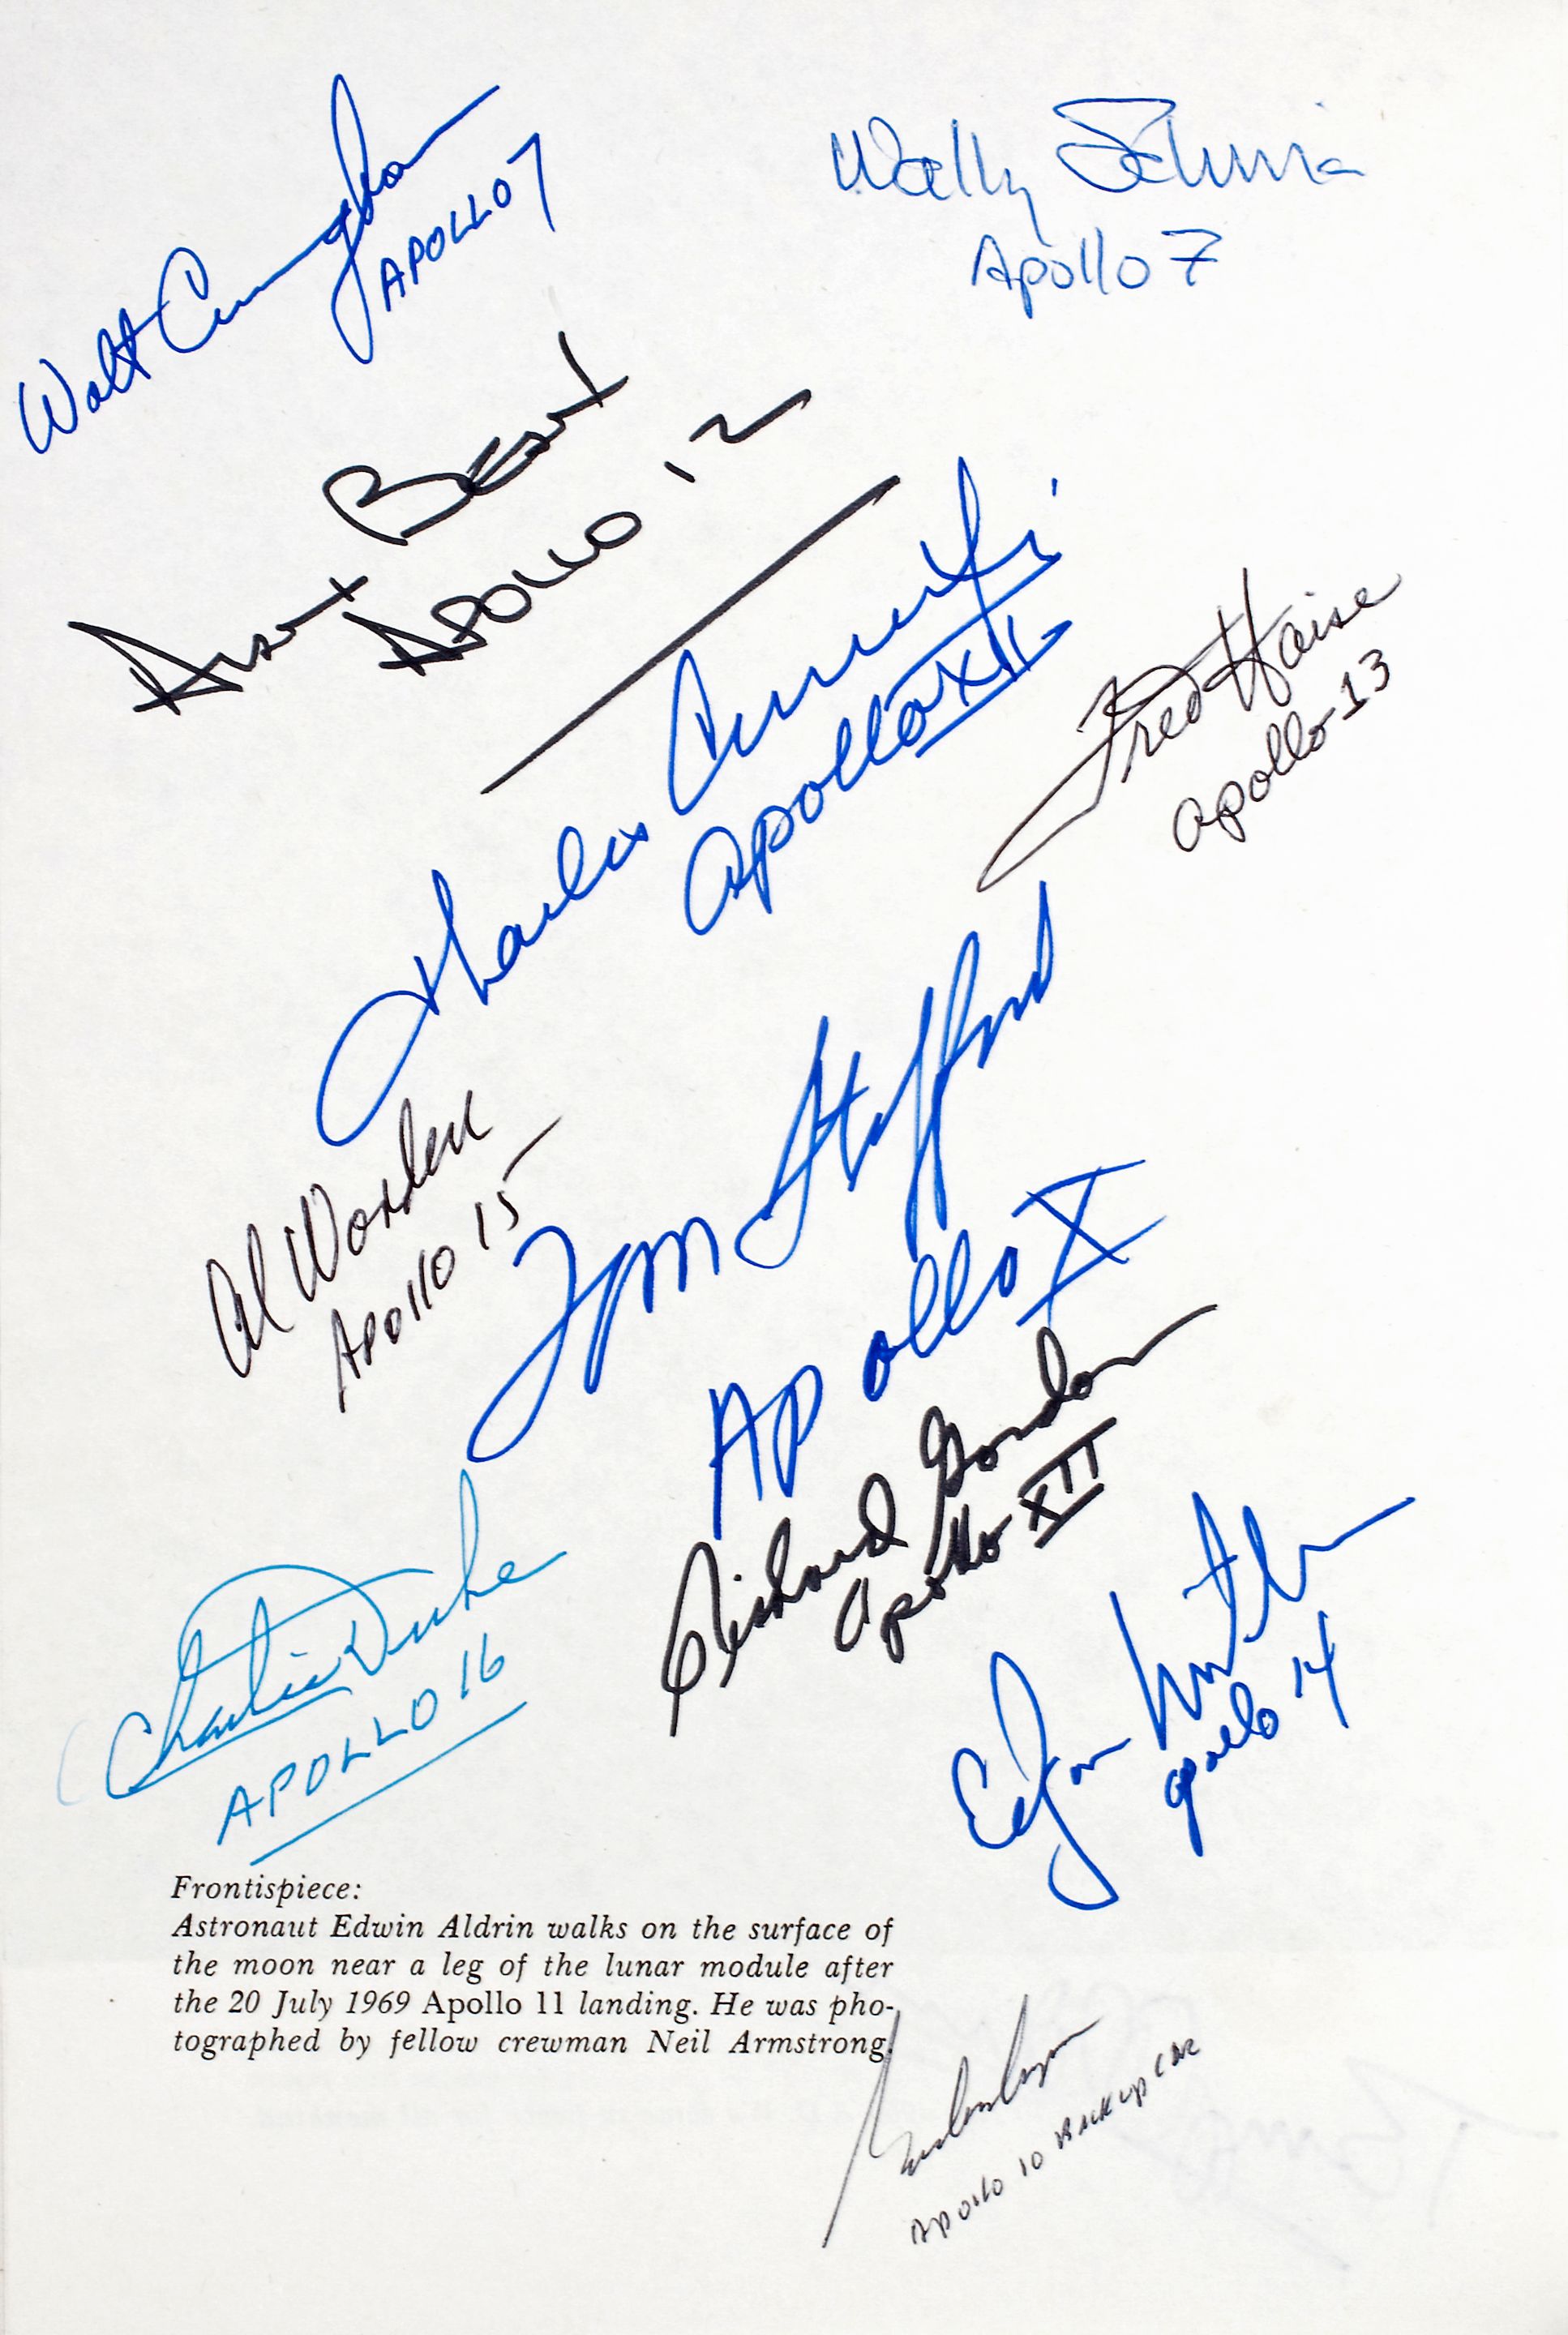 Walt Cunningham
APOLLO 7
Wally Schirra
Apollo 7
Alan BEAN
APOLLO 12
Charles Conrad Jr.
Apollo XII
Fred Haise
Apollo-13
Al Worden
Apollo 15
Tom Stafford
Apollo X
Richard Gordon
Apollo XII
Charlie Duke
APOLLO 16
Edgar Mitchell
Apollo 14
Frontispiece:
Astronaut Edwin Aldrin walks on the surface of
the moon near a leg of the lunar module after
the 20 July 1969 Apollo 11 landing. He was pho-
tographed by fellow crewman Neil Armstrong.
Gordon Cooper
APOLLO 10 BACKUP CDR